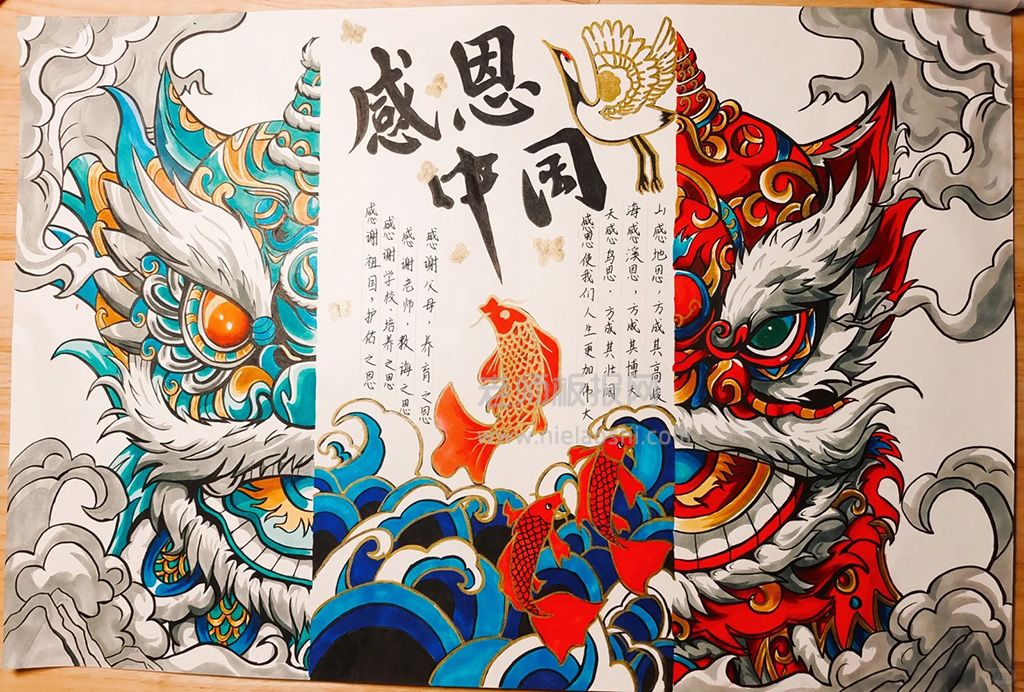 感恩
中国
山感地恩，方成其高峻
海感溪恩，方成其博大
天感鸟恩，方成其壮阔
感恩使我们人生更加伟大
感谢父母，养育之恩
感谢老师，教诲之恩
感谢学校，培养之恩
感谢祖国，护佑之恩
板报网